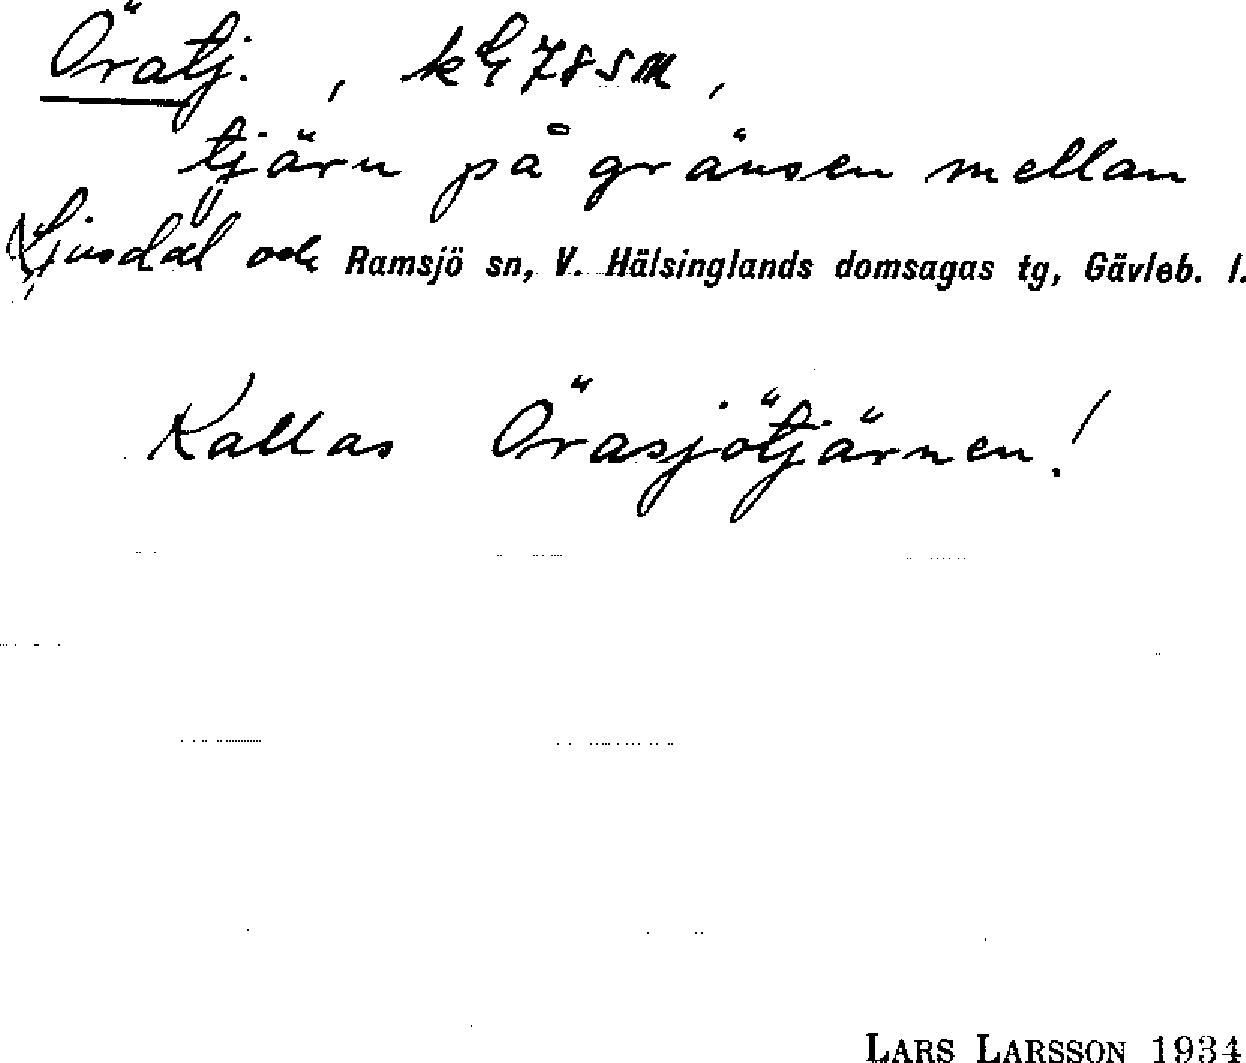 Örätj., k G 78 sm,
tjärn på gränsen mellan
Ljusdal och Ramsjö sn, V. Hälsinglands domsagas tg, Gävleb. l.
Kallas Örasjötjärnen!
LARS LARSSON 1934